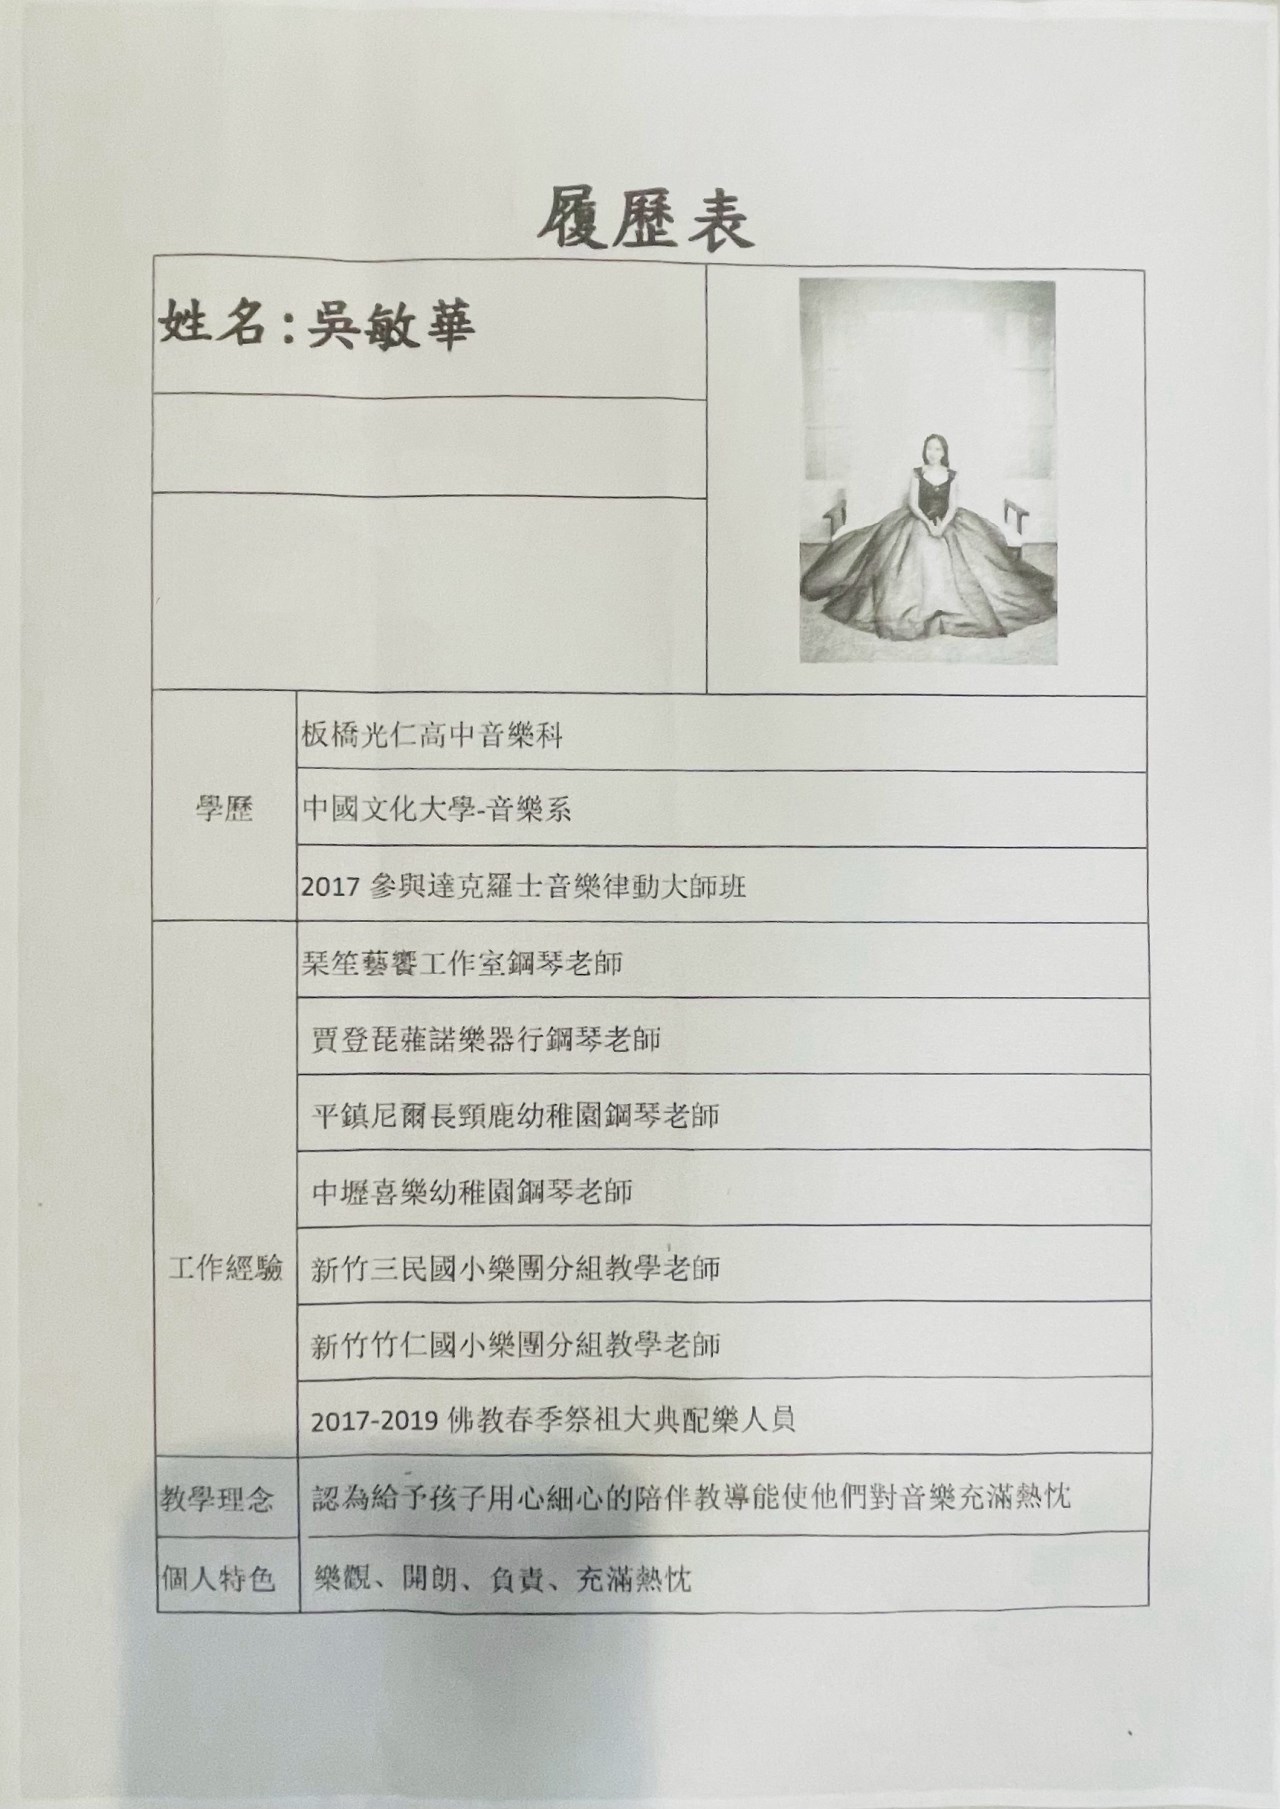 履歷表
姓名:吳敏華
學歷
板橋光仁高中音樂科
中國文化大學-音樂系
2017 參與達克羅士音樂律動大師班
工作經驗
琹笙藝饗工作室鋼琴老師
賈登琵蘿諾樂器行鋼琴老師
平鎮尼爾長頸鹿幼稚園鋼琴老師
中壢喜樂幼稚園鋼琴老師
新竹三民國小樂團分組教學老師
新竹竹仁國小樂團分組教學老師
2017-2019 佛教春季祭祖大典配樂人員
教學理念
認為給予孩子用心細心的陪伴教導能使他們對音樂充滿熱忱
個人特色
樂觀、開朗、負責、充滿熱忱